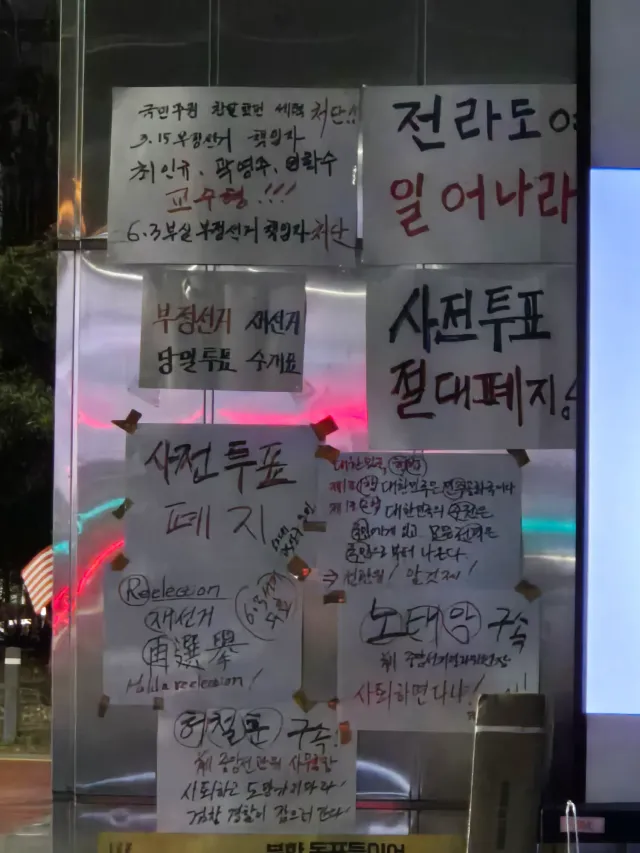 국민주권 찬탈했던 세력 처단!!
3.15 부정선거 책임자
최인규, 곽영주,
교수형!!!
6.3 부실 부정선거 책임자 처단
전라도여
일어나라
부정선거 재선거
당일투표 수개표
사전투표
절대폐지!
사전투표
폐지
대한민국 헌법
제1조 1항 대한민국은 민주공화국이다
대한민국의 주권은
국민에게 있고 모든 권력은
국민으로부터 나온다.
⇒ 선관위! 알것제!
Reelection
재선거
再選擧
Hold a reelection!
6.3선거
무효
노태악 구속
前 중앙선거관리위원장
사퇴하면 다냐!
허철훈 구속!
前 중앙선관위 사무총장
사퇴하고 도망가지마라
검찰 경찰이 잡으러 간다
북한 동포들이여